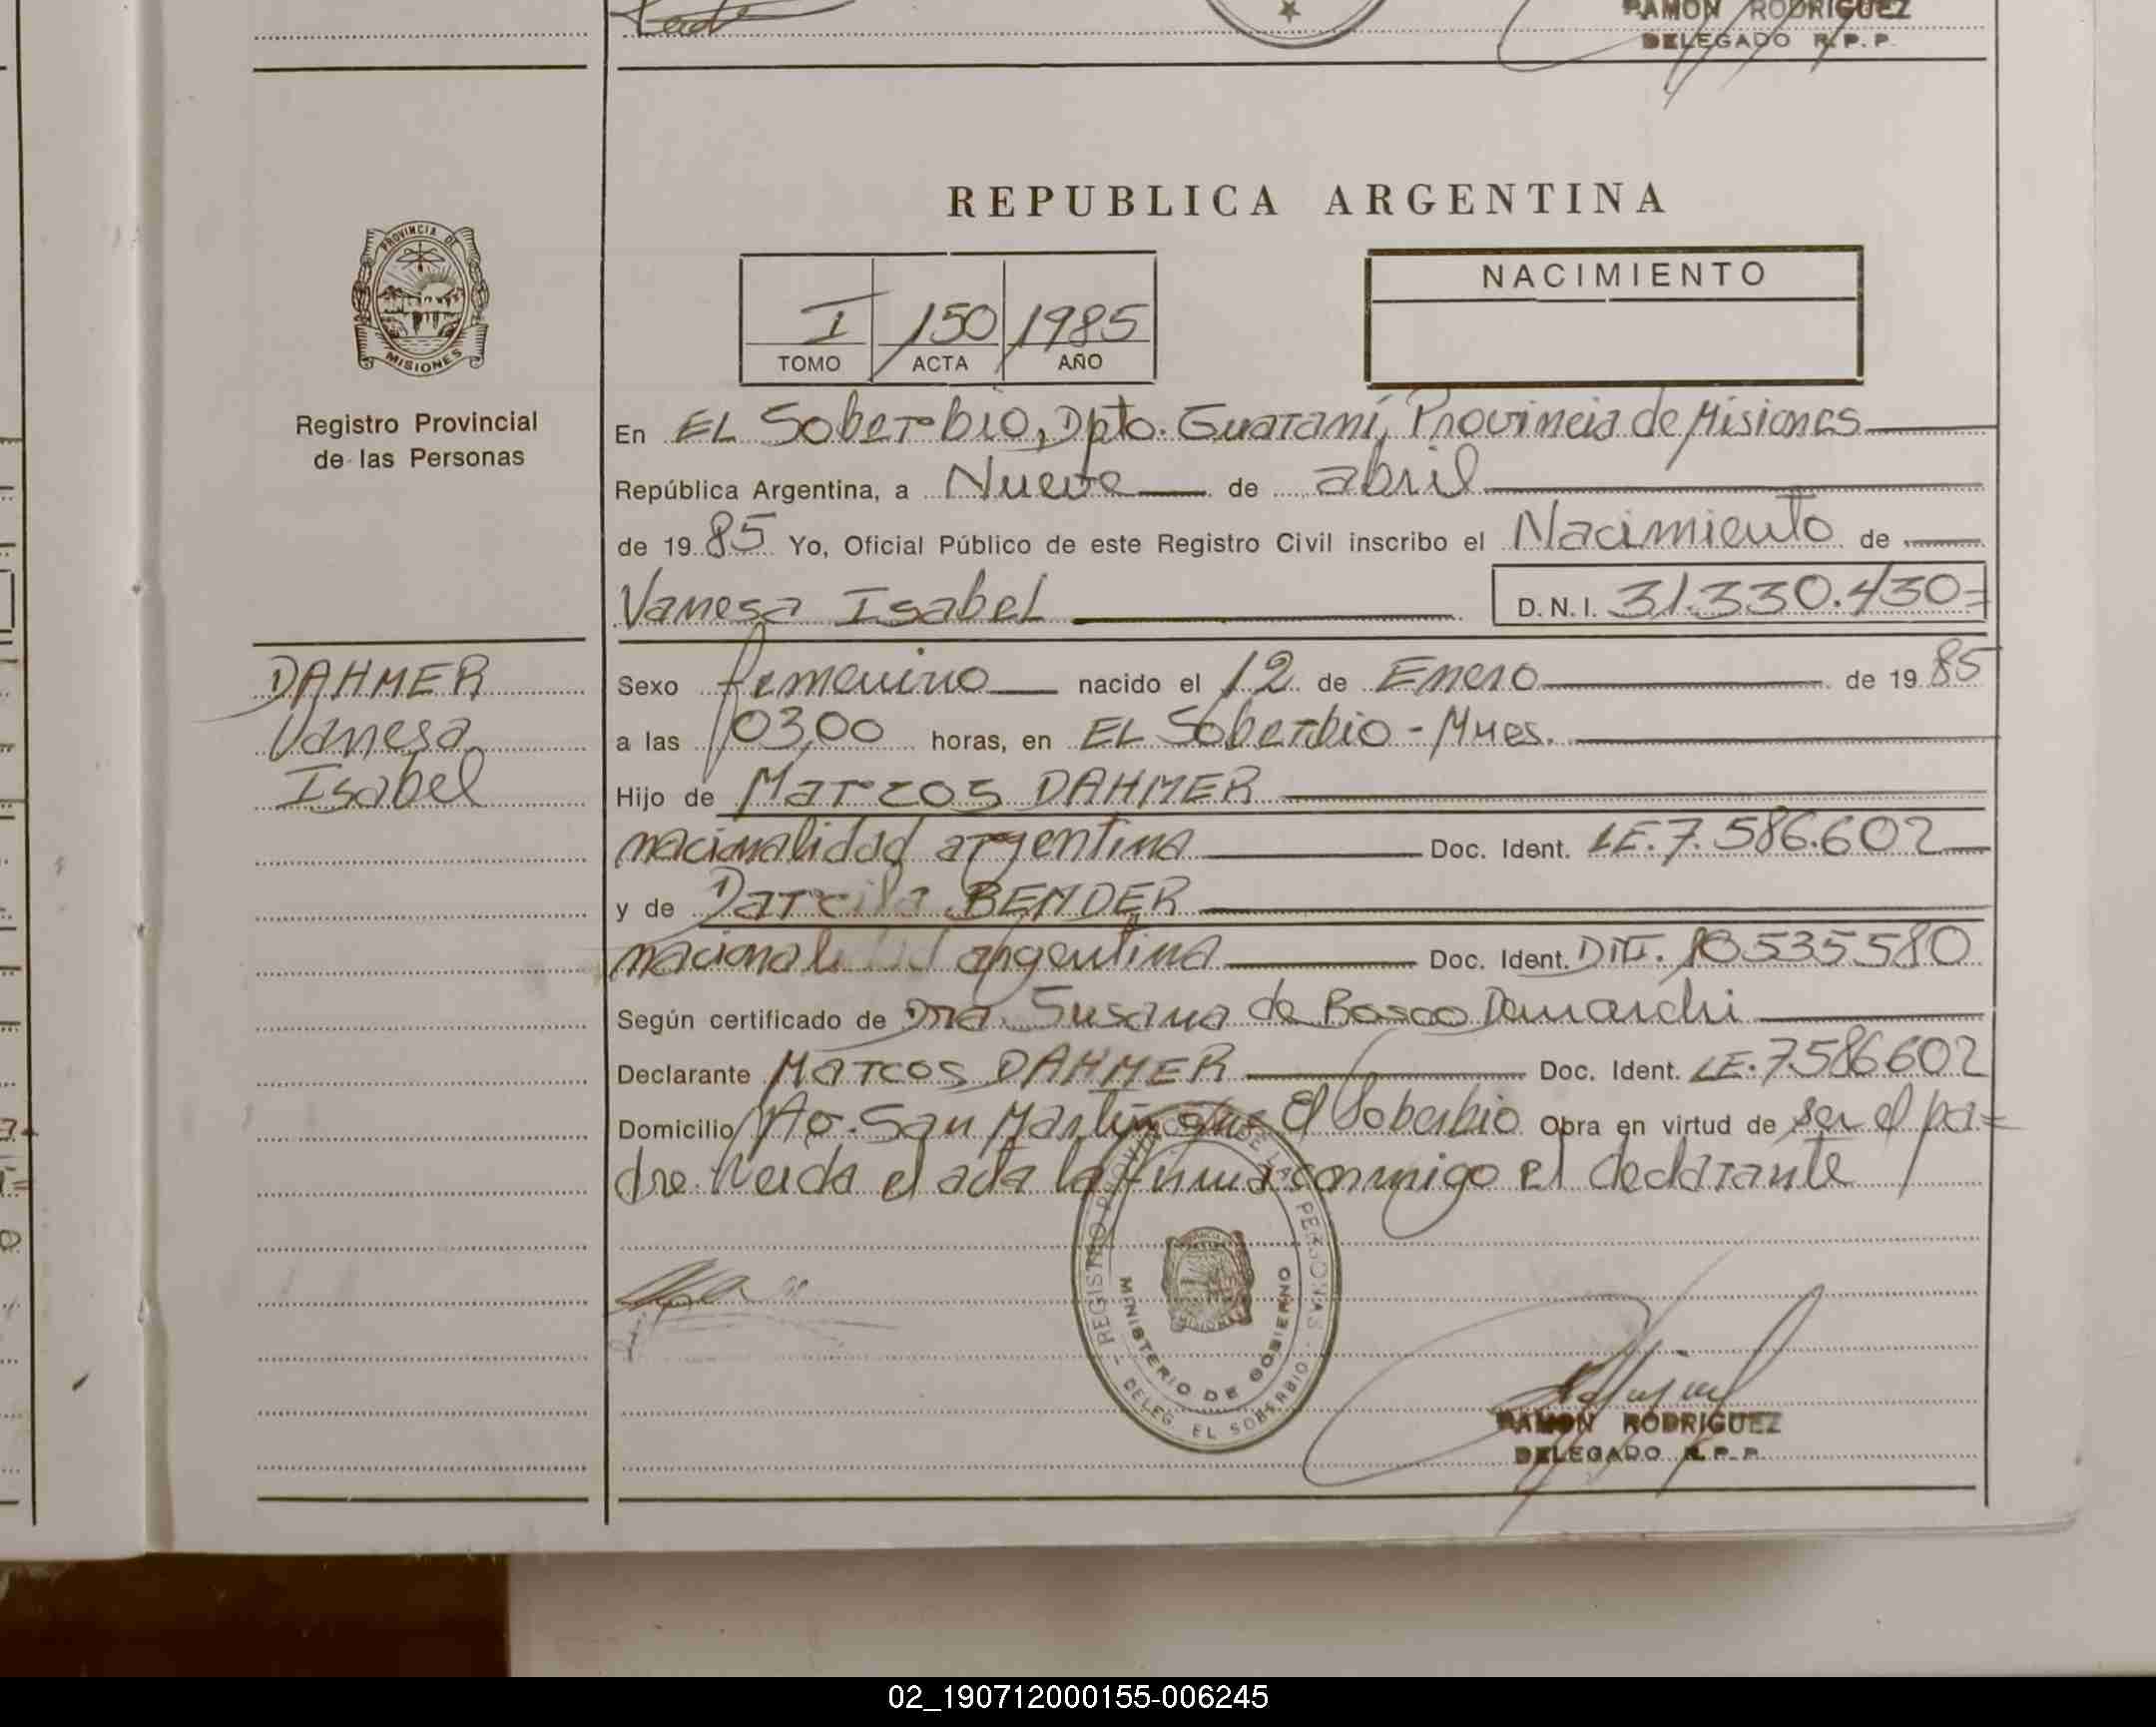 RAMON RODRIGUEZ
DELEGADO R.P.P.
REPUBLICA ARGENTINA
PROVINCIA DE
MISIONES
Registro Provincial
de las Personas
NACIMIENTO
I 150 1985
TOMO ACTA AÑO
En EL Soberbio, Dpto. Guaraní, Provincia de Misiones
República Argentina, a Nueve de abril
de 1985 Yo, Oficial Público de este Registro Civil inscribo el Nacimiento de
Vanesa Isabel D.N.I. 31.330.430=
DAHMER
Vanesa
Isabel
Sexo femenino nacido el 12 de Enero de 1985
a las 03,00 horas, en EL Soberbio - Mnes.
Hijo de Marcos DAHMER
nacionalidad argentina Doc. Ident. LE. 7.586.602
y de Darcila BENDER
nacionalidad argentina Doc. Ident. DNI. 10535580
Según certificado de Dra. Susana de Bosco Demarchi
Declarante Marcos DAHMER Doc. Ident. LE. 7586602
Domicilio Aº. San Martín El Soberbio Obra en virtud de ser el pa=
dre. Leida el acta la firma conmigo el declarante
REGISTRO PROVINCIAL DE LAS PERSONAS
MINISTERIO DE GOBIERNO
DELEG. EL SOBERBIO
RAMON RODRIGUEZ
DELEGADO R.P.P.
02_190712000155-006245